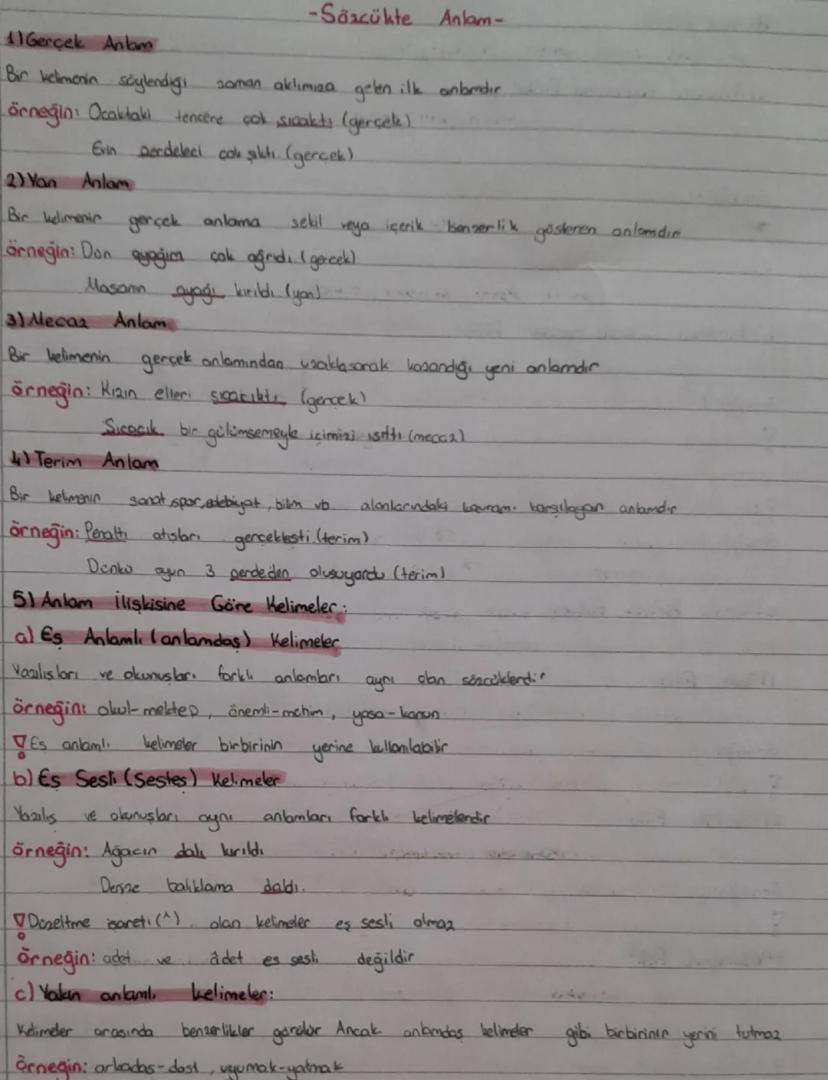 -Sözcükte Anlam-
1) Gerçek Anlam
Bir kelimenin söylendiği zaman aklımıza gelen ilk anlamdır
örneğin: Ocaktaki tencere çok sıcaktı (gerçek)
Evin perdeleri çok şıktı. (gerçek)
2) Yan Anlam
Bir kelimenin gerçek anlama şekil veya içerik benzerlik gösteren anlamdır
örneğin: Dün ayağım çok ağrıdı (gerçek)
Masanın ayağı kırıldı (yan)
3) Mecaz Anlam
Bir kelimenin gerçek anlamından uzaklaşarak kazandığı yeni anlamdır
örneğin: Kızın elleri sıcacıktı (gerçek)
Sıcacık bir gülümsemeyle içimizi ısıttı (mecaz)
4) Terim Anlam
Bir kelimenin sanat, spor, edebiyat, bilim vb. alanlarındaki kavramı karşılayan anlamdır
örneğin: Penaltı atışları gerçekleşti. (terim)
Dünkü oyun 3 perdeden oluşuyordu (terim)
5) Anlam İlişkisine Göre Kelimeler:
a) Eş Anlamlı (anlamdaş) Kelimeler
Yazılışları ve okunuşları farklı anlamları aynı olan sözcüklerdir
örneğin: okul-mektep, önemli-mühim, yasa-kanun
! Eş anlamlı kelimeler birbirinin yerine kullanılabilir
b) Eş Sesli (Sesteş) Kelimeler
Yazılış ve okunuşları aynı anlamları farklı kelimelerdir
örneğin: Ağacın dalı kırıldı.
Denize balıklama daldı.
! Düzeltme işareti (^) olan kelimeler eş sesli olmaz
örneğin: adet ve âdet eş sesli değildir
c) Yakın anlamlı kelimeler:
Kelimeler arasında benzerlikler görülür Ancak anlamdaş kelimeler gibi birbirinin yerini tutmaz
örneğin: arkadaş-dost, uyumak-yatmak